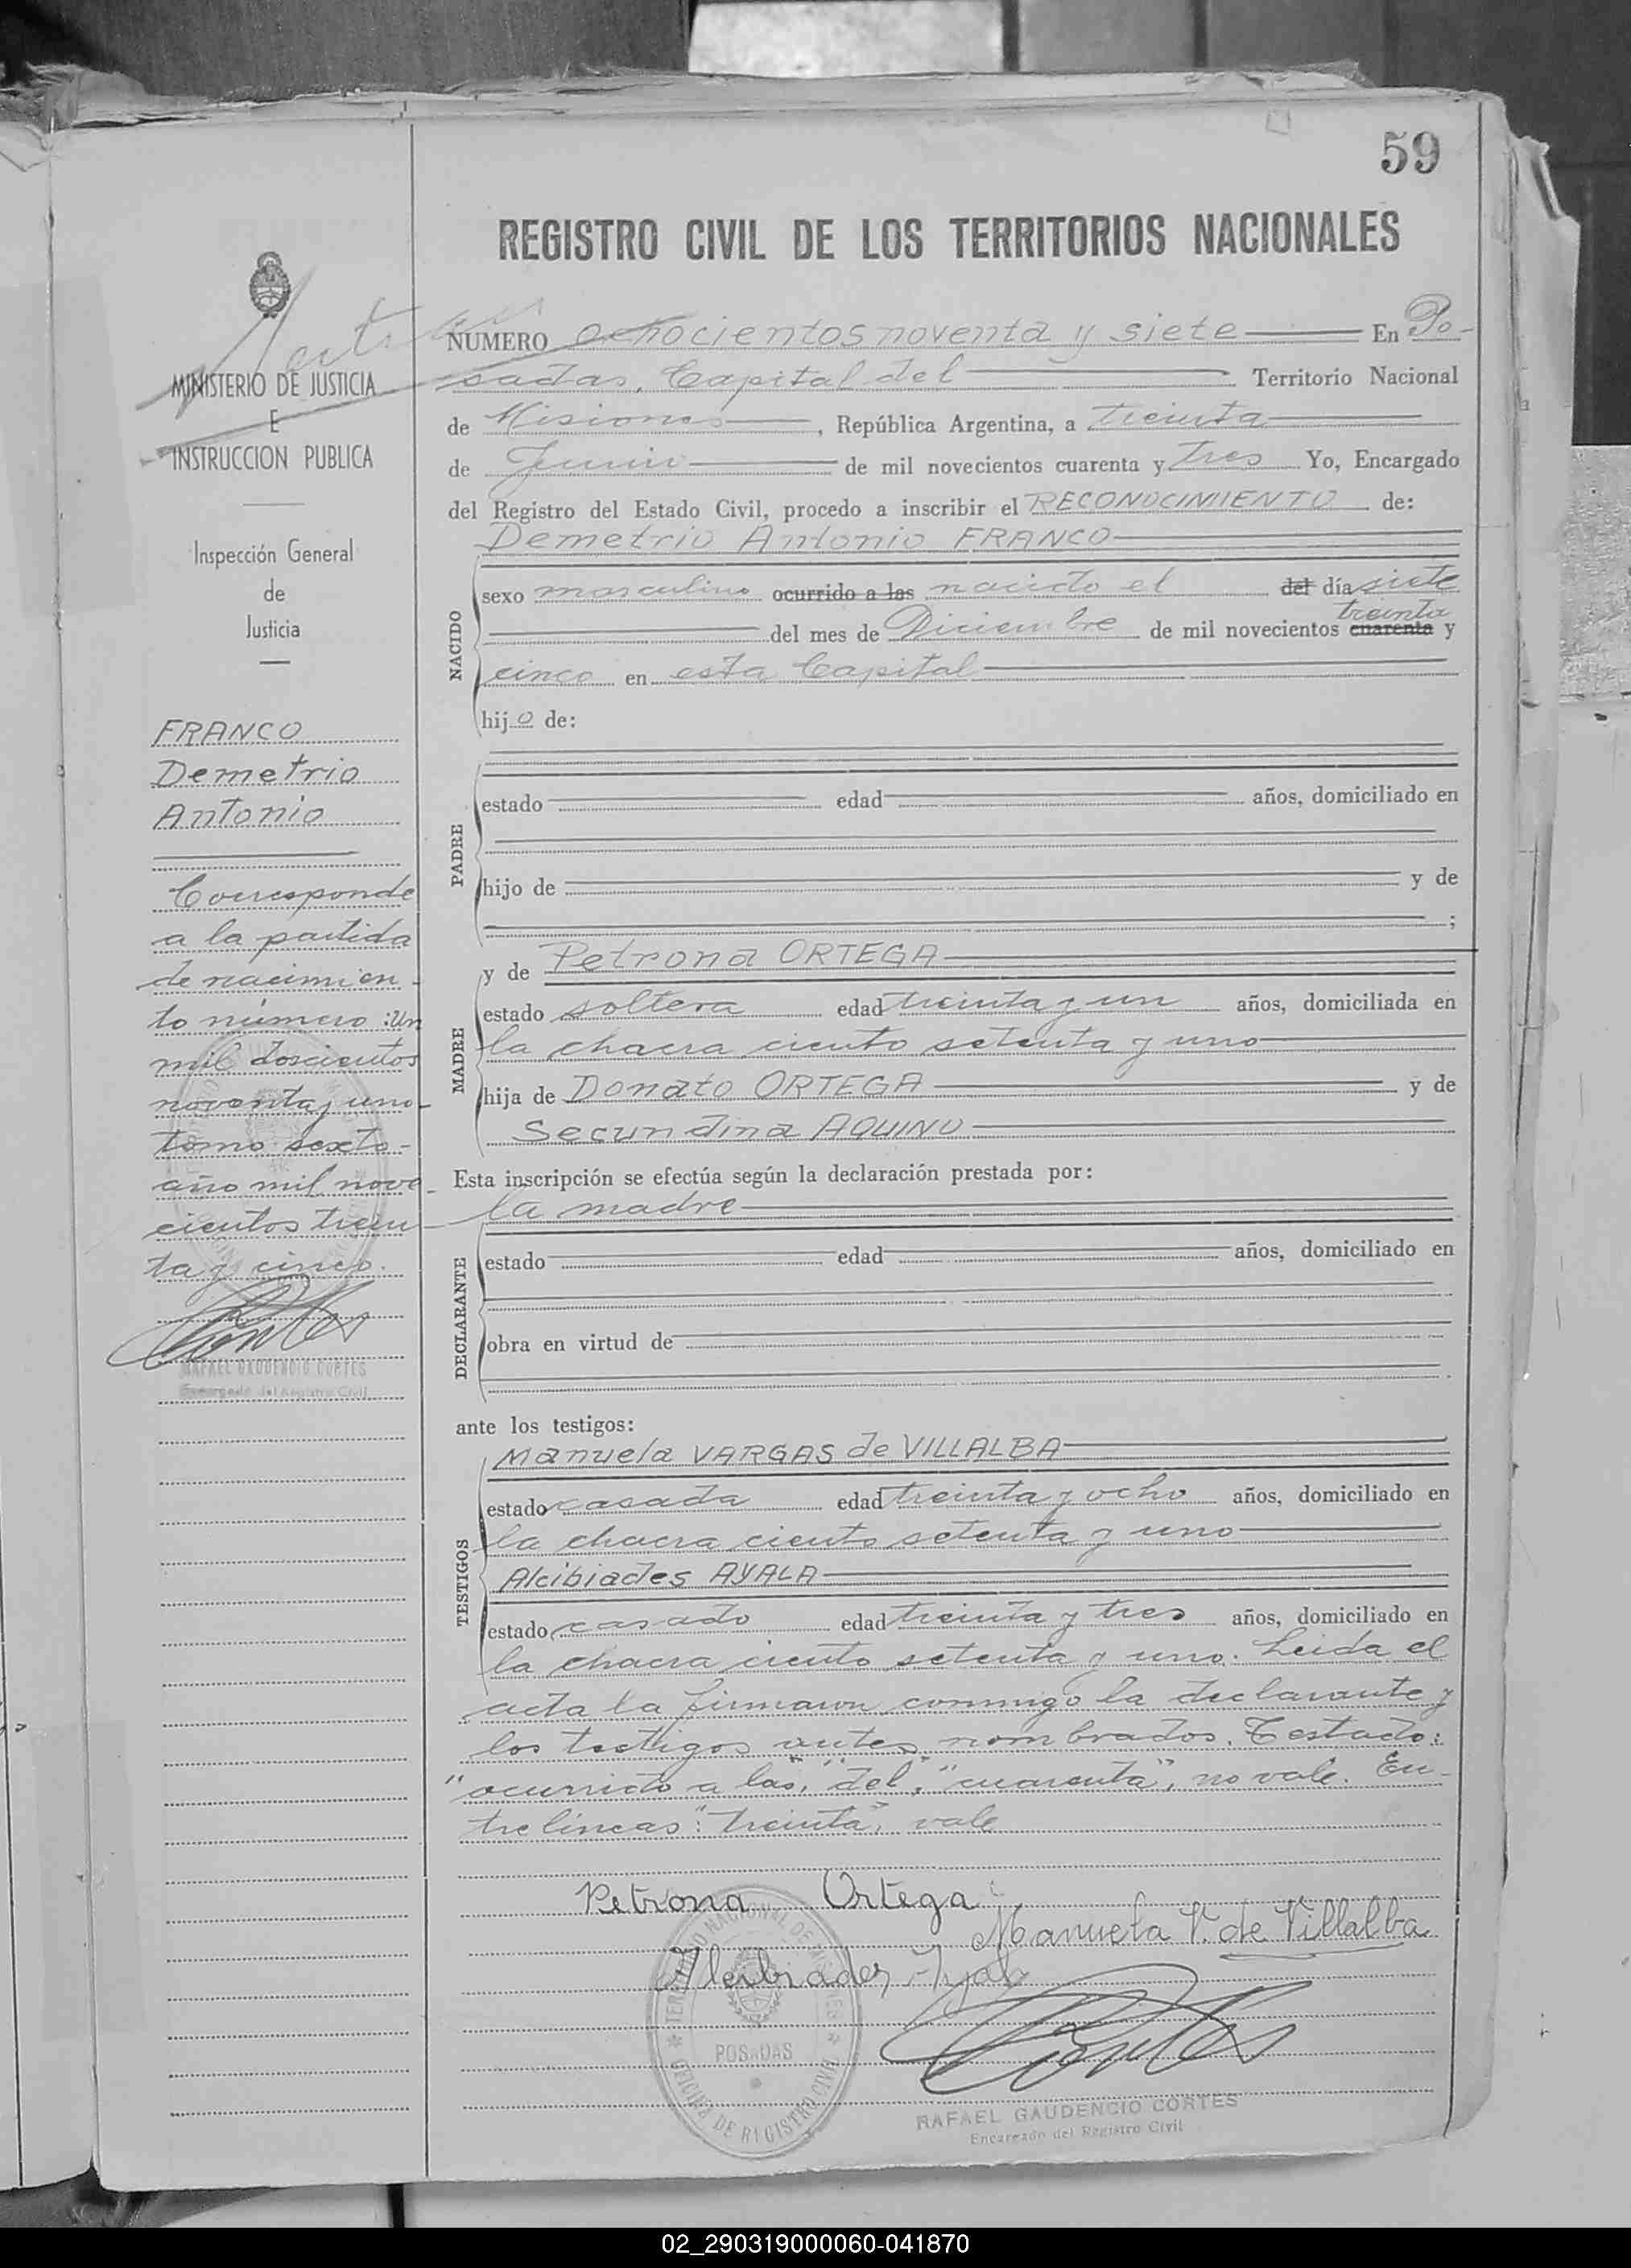 59
REGISTRO CIVIL DE LOS TERRITORIOS NACIONALES
MINISTERIO DE JUSTICIA
E
INSTRUCCION PUBLICA
Inspección General
de
Justicia
FRANCO
Demetrio
Antonio
Corresponde
a la partida
de nacimien-
to número: Un
mil doscientos
noventa y uno-
tomo sexto-
año mil nove-
cientos trein-
ta y cinco.
Cortes
RAFAEL GAUDENCIO CORTES
Encargado del Registro Civil
NUMERO ochocientos noventa y siete En Po-
sadas, Capital del Territorio Nacional
de Misiones, República Argentina, a treinta
de Junio de mil novecientos cuarenta y tres Yo, Encargado
del Registro del Estado Civil, procedo a inscribir el RECONOCIMIENTO de:
Demetrio Antonio FRANCO
NACIDO
sexo masculino ocurrido a las nacido el del día siete
treinta
del mes de Diciembre de mil novecientos cuarenta y
cinco en esta Capital
hijo de:
PADRE
estado edad años, domiciliado en
hijo de y de
;
y de Petrona ORTEGA
MADRE
estado soltera edad treinta y un años, domiciliada en
la chacra ciento setenta y uno
hija de Donato ORTEGA y de
Secundina AQUINO
Esta inscripción se efectúa según la declaración prestada por:
la madre
DECLARANTE
estado edad años, domiciliado en
obra en virtud de
ante los testigos:
Manuela VARGAS de VILLALBA
TESTIGOS
estado casada edad treinta y ocho años, domiciliado en
la chacra ciento setenta y uno
Alcibiades AYALA
estado casado edad treinta y tres años, domiciliado en
la chacra ciento setenta y uno. Leida el
acta la firmaron conmigo la declarante y
los testigos antes nombrados. Testado:
"ocurrido a las", "del", "cuarenta", no vale. En-
tre líneas: "treinta", vale
Petrona Ortega
Manuela V. de Villalba
Alcibiades Ayala
TERRITORIO NACIONAL DE MISIONES
POSADAS
OFICINA DE REGISTRO CIVIL
Cortes
RAFAEL GAUDENCIO CORTES
Encargado del Registro Civil
02_290319000060-041870